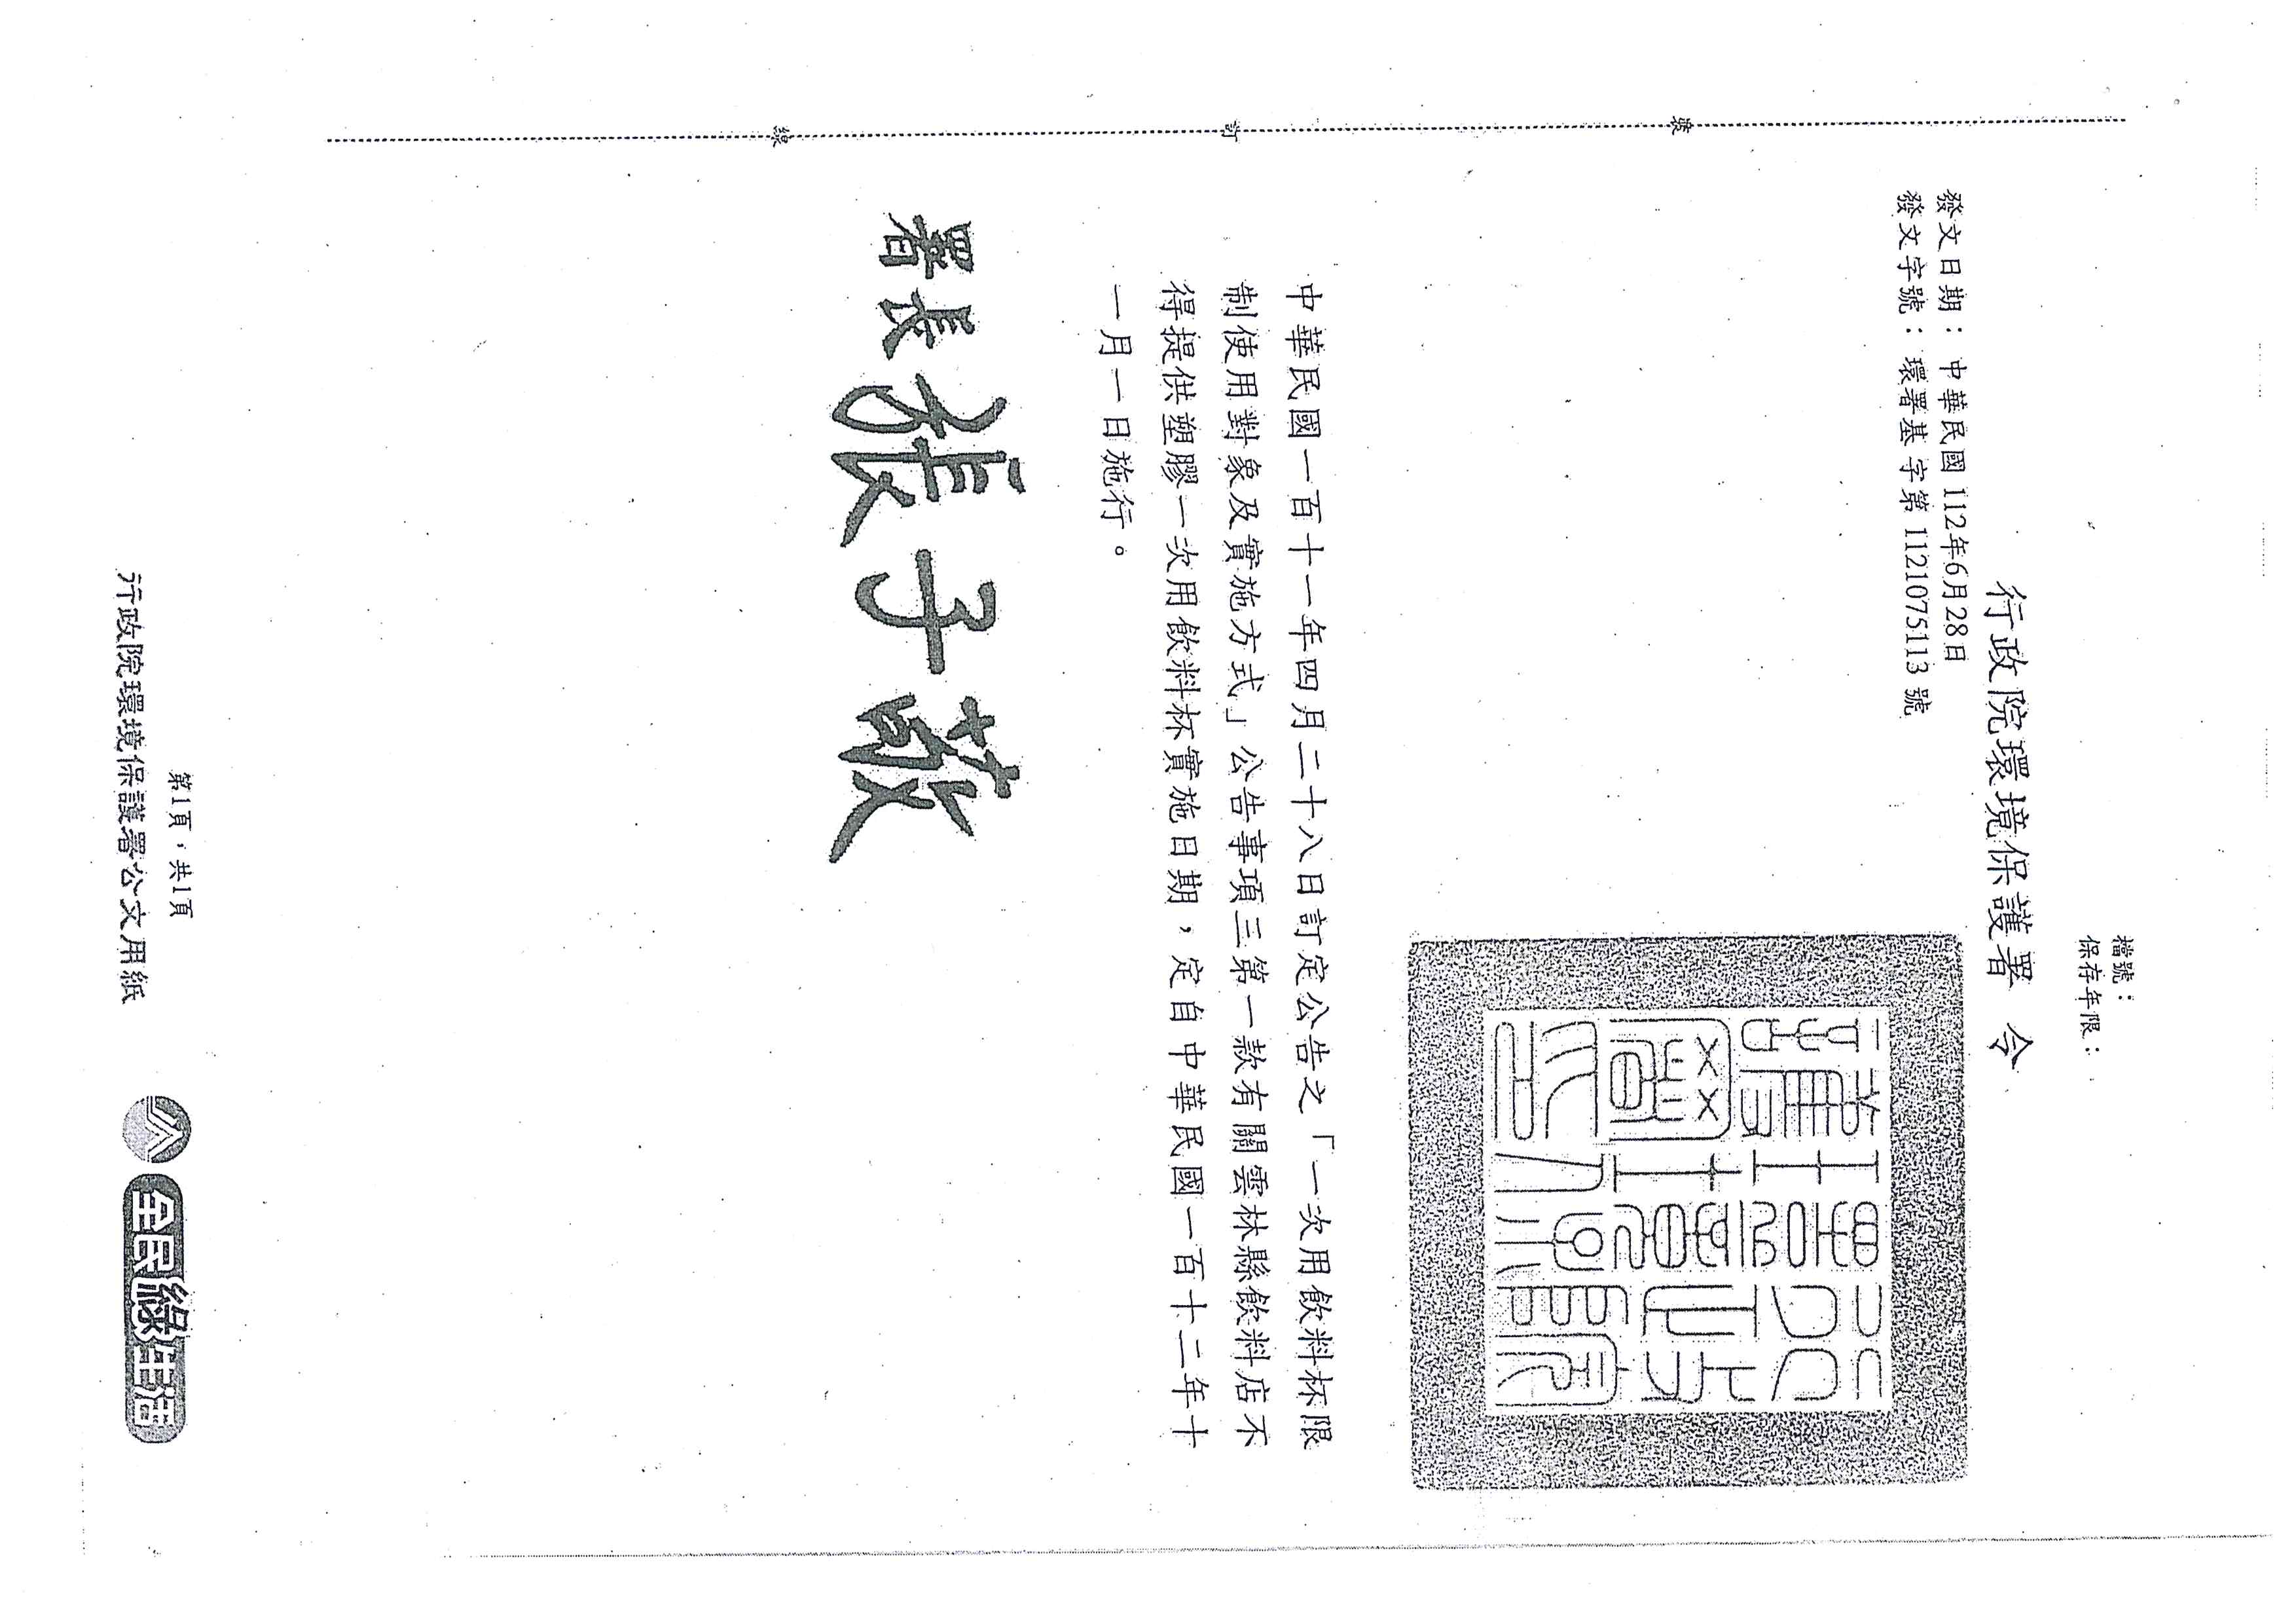 檔號：
保存年限：
行政院環境保護署 令
發文日期：中華民國112年6月28日
發文字號：環署基字第1121075113號
中華民國一百十一年四月二十八日訂定公告之「一次用飲料杯限
制使用對象及實施方式」公告事項三第一款有關雲林縣飲料店不
得提供塑膠一次用飲料杯實施日期，定自中華民國一百十二年十
一月一日施行。
署長張子敬
裝
訂
線
第1頁，共1頁
行政院環境保護署公文用紙
全民綠生活